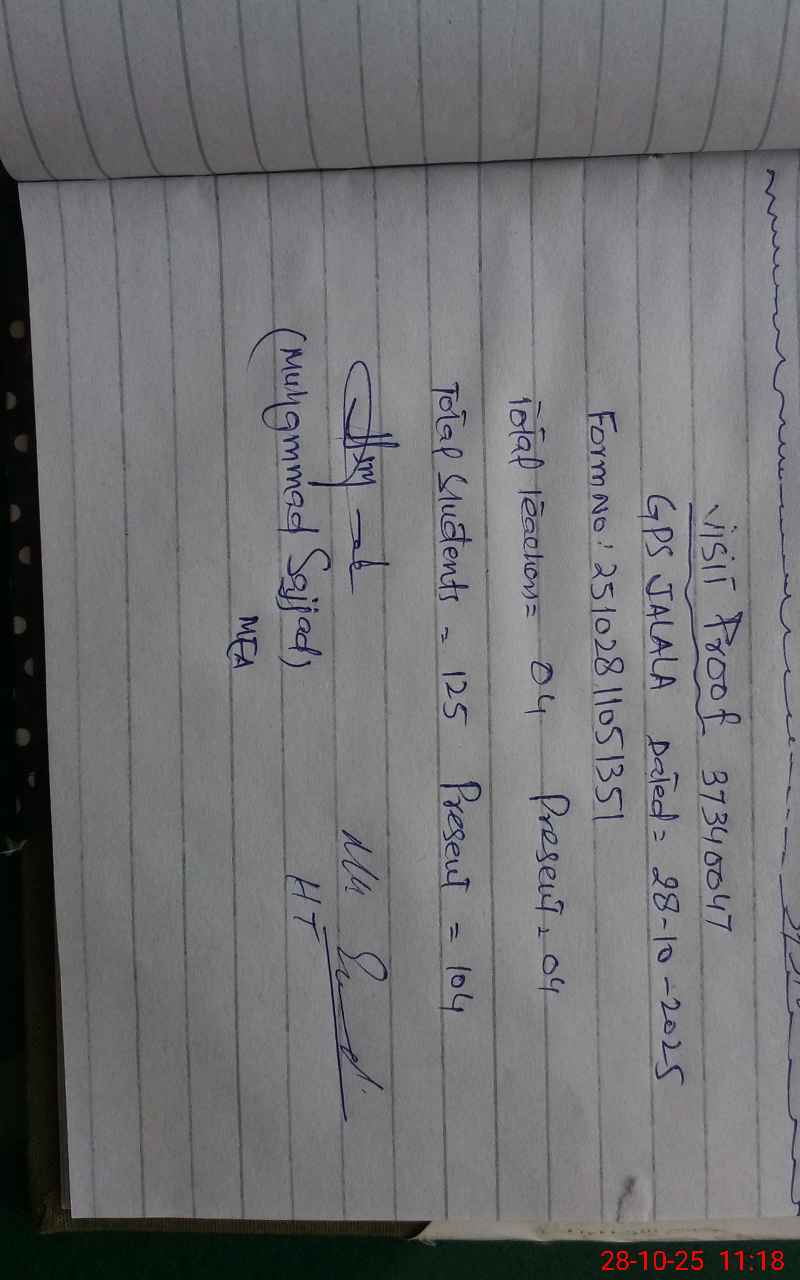 Visit Proof 37340047
GPS JALALA Dated = 28-10-2025
Form No: 25102811051351
Total Teachers = 04 Present = 04
Total Students = 125 Present = 104
(Muhammad Sajjad)
MEA
HT
28-10-25 11:18